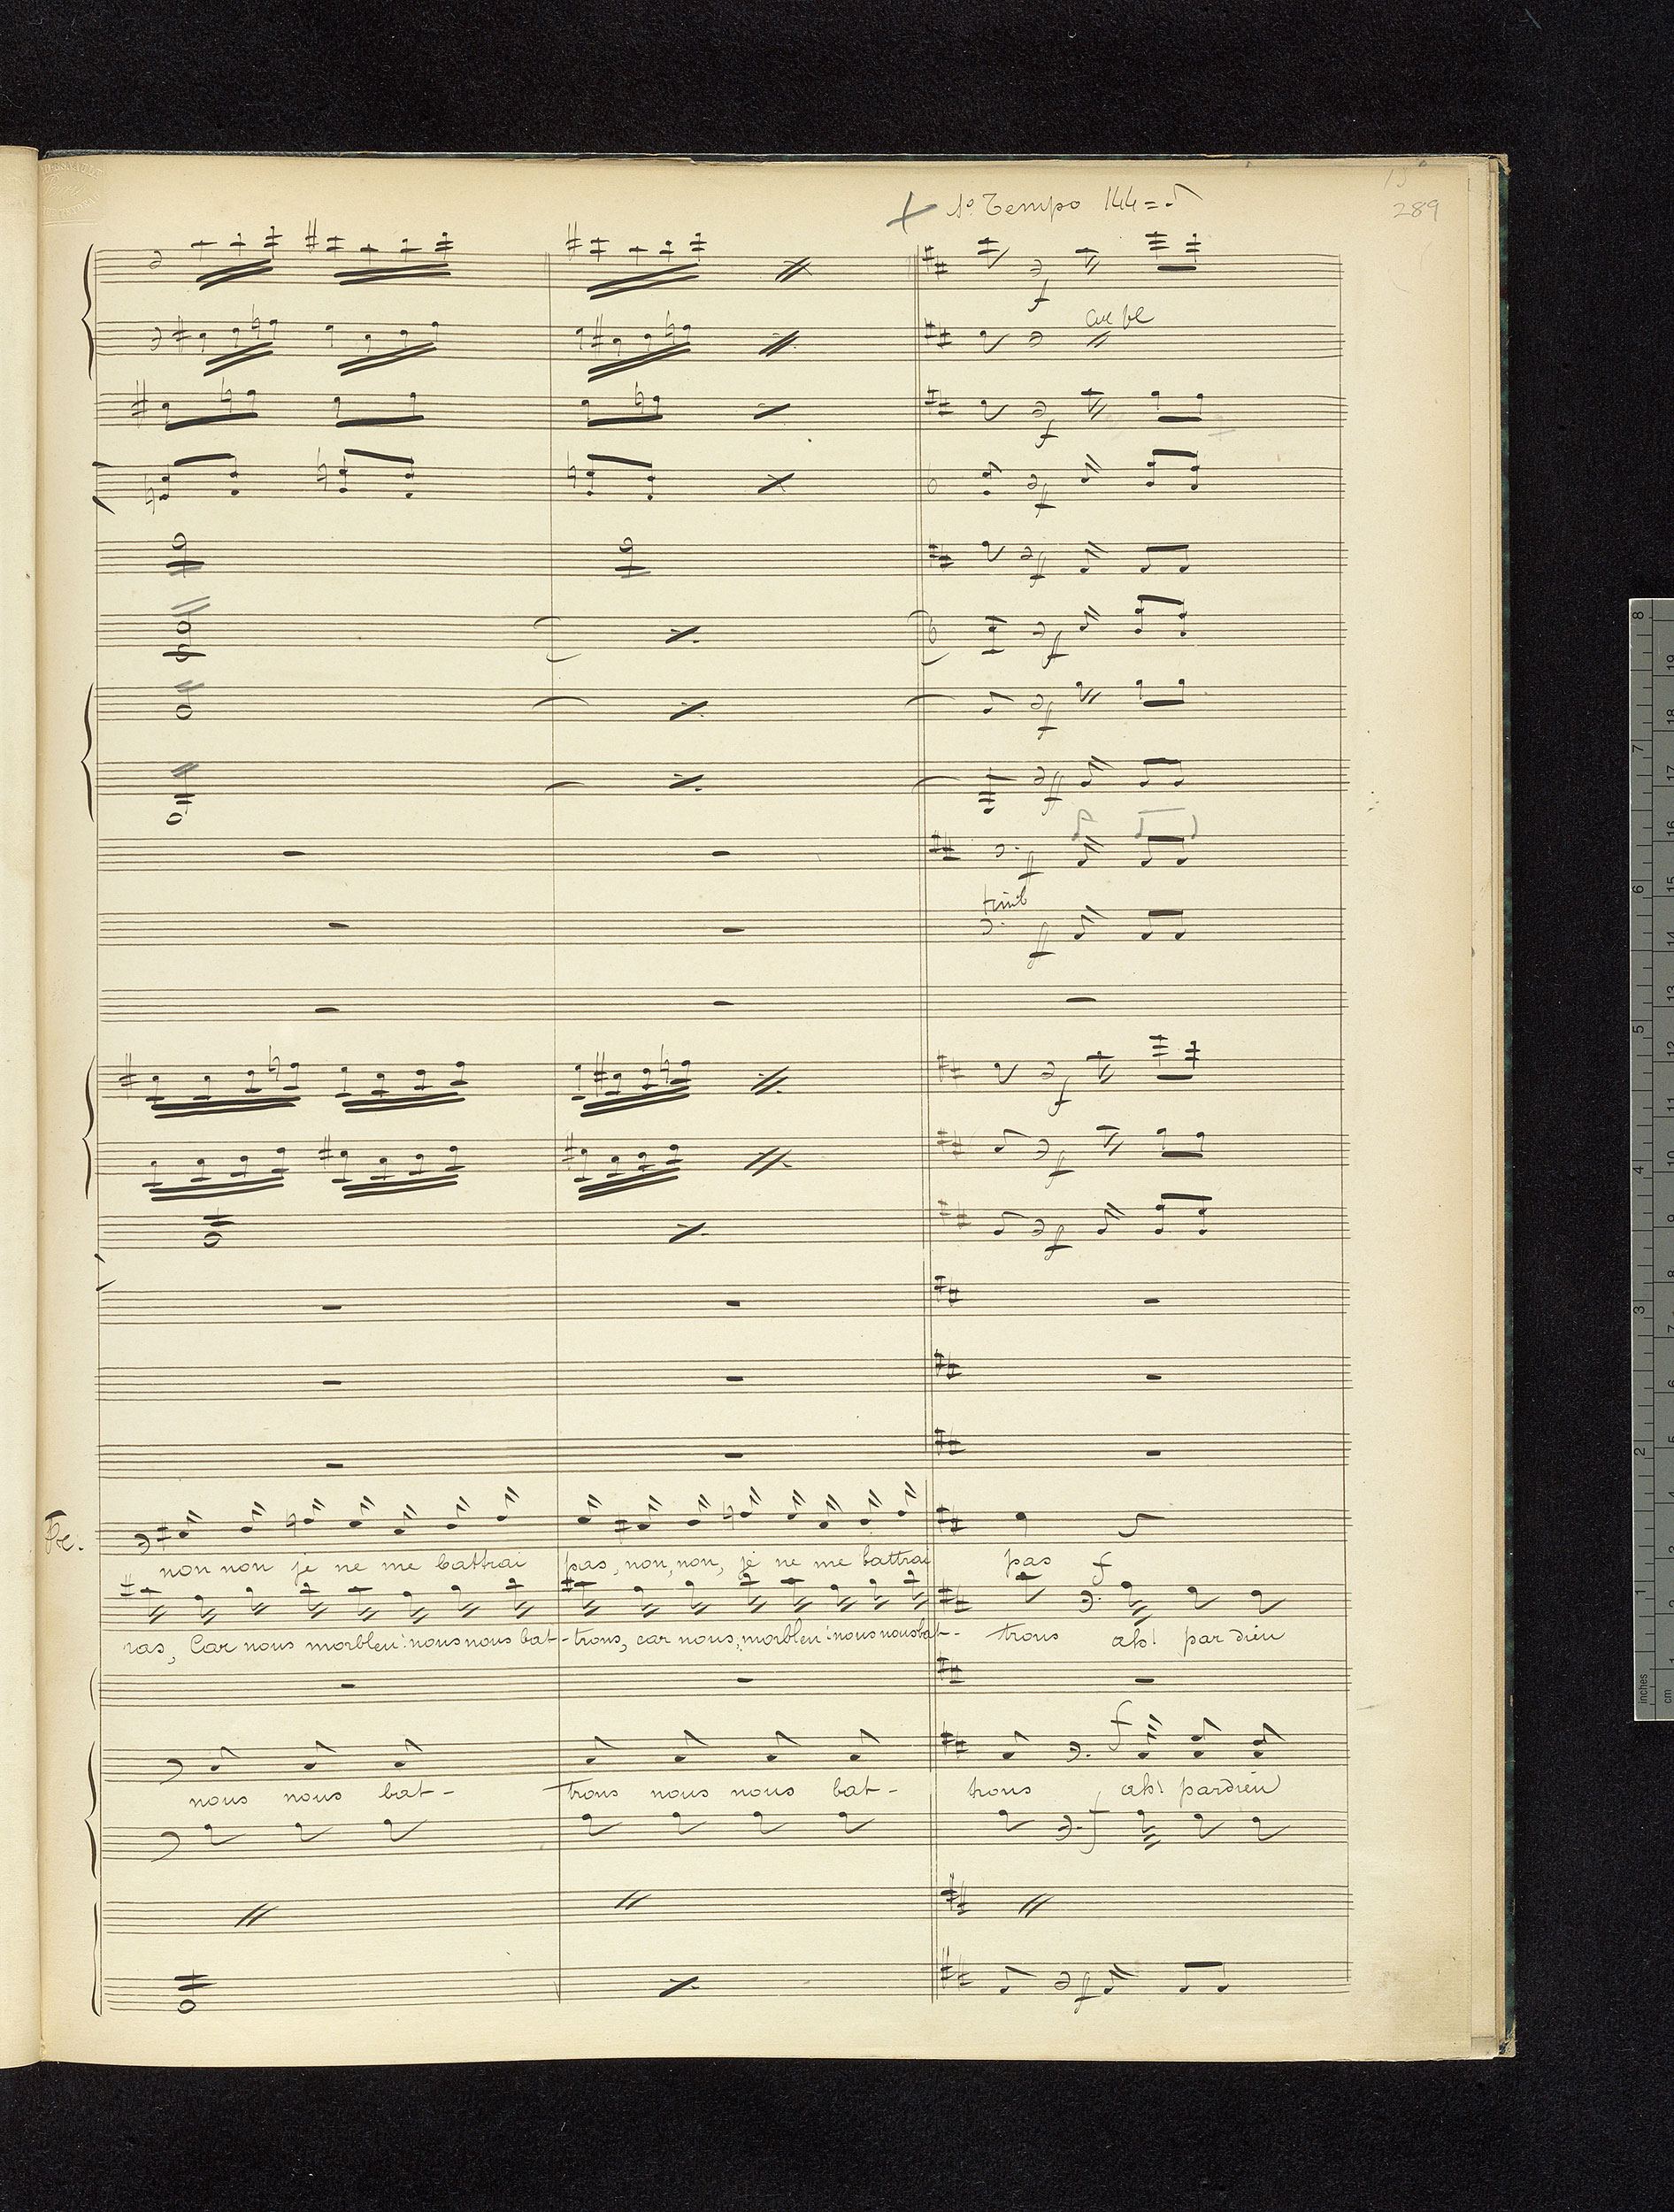 1º Tempo 144 = ♪
289
f
f
f
ff
ff
ff
ff
ff
timb
ff
f
f
ff
non non je ne me battrai pas, non, non, je ne me battrai pas
f
ras, Car nous morbleu! nous nous bat-trons, car nous, morbleu! nous nous bat- trons ah! par dieu
f
nous nous bat- trons nous nous bat- trons ah! pardieu
f
ff
inches
cm
1 2 3 4 5 6 7 8